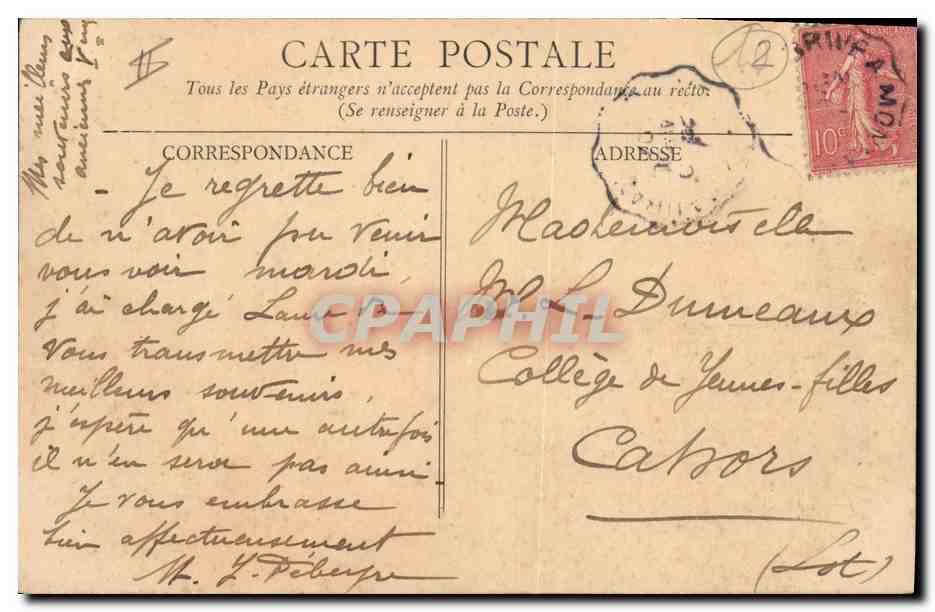 Mes meilleurs
souvenirs aux
anciennes
CARTE POSTALE
Tous les Pays étrangers n'acceptent pas la Correspondance au recto.
(Se renseigner à la Poste.)
CORRESPONDANCE
- Je regrette bien
de n'avoir pu venir
vous voir mardi,
j'ai chargé
vous transmettre mes
meilleurs souvenirs,
j'espère qu'une autrefois
il n'en sera pas ainsi
Je vous embrasse
bien affectueusement
M.
ADRESSE
Mademoiselle
M L. Dumeaux
Collège de Jeunes-filles
Cahors
(Lot)
12
10c
BRIVE A MON
CPAPHIL